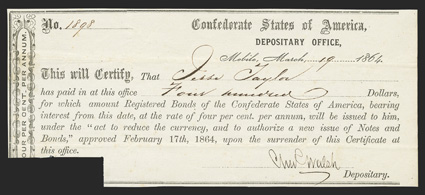 No. 1898
Confederate States of America,
DEPOSITARY OFFICE,
Mobile, March 19 1864.
This will Certify, That Jesse Taylor
has paid in at this office Four hundred Dollars,
for which amount Registered Bonds of the Confederate States of America, bearing
interest from this date, at the rate of four per cent. per annum, will be issued to him,
under the "act to reduce the currency, and to authorize a new issue of Notes and
Bonds," approved February 17th, 1864, upon the surrender of this Certificate at
this office.
Walsh
Depositary.
FOUR PER CENT. PER ANNUM.